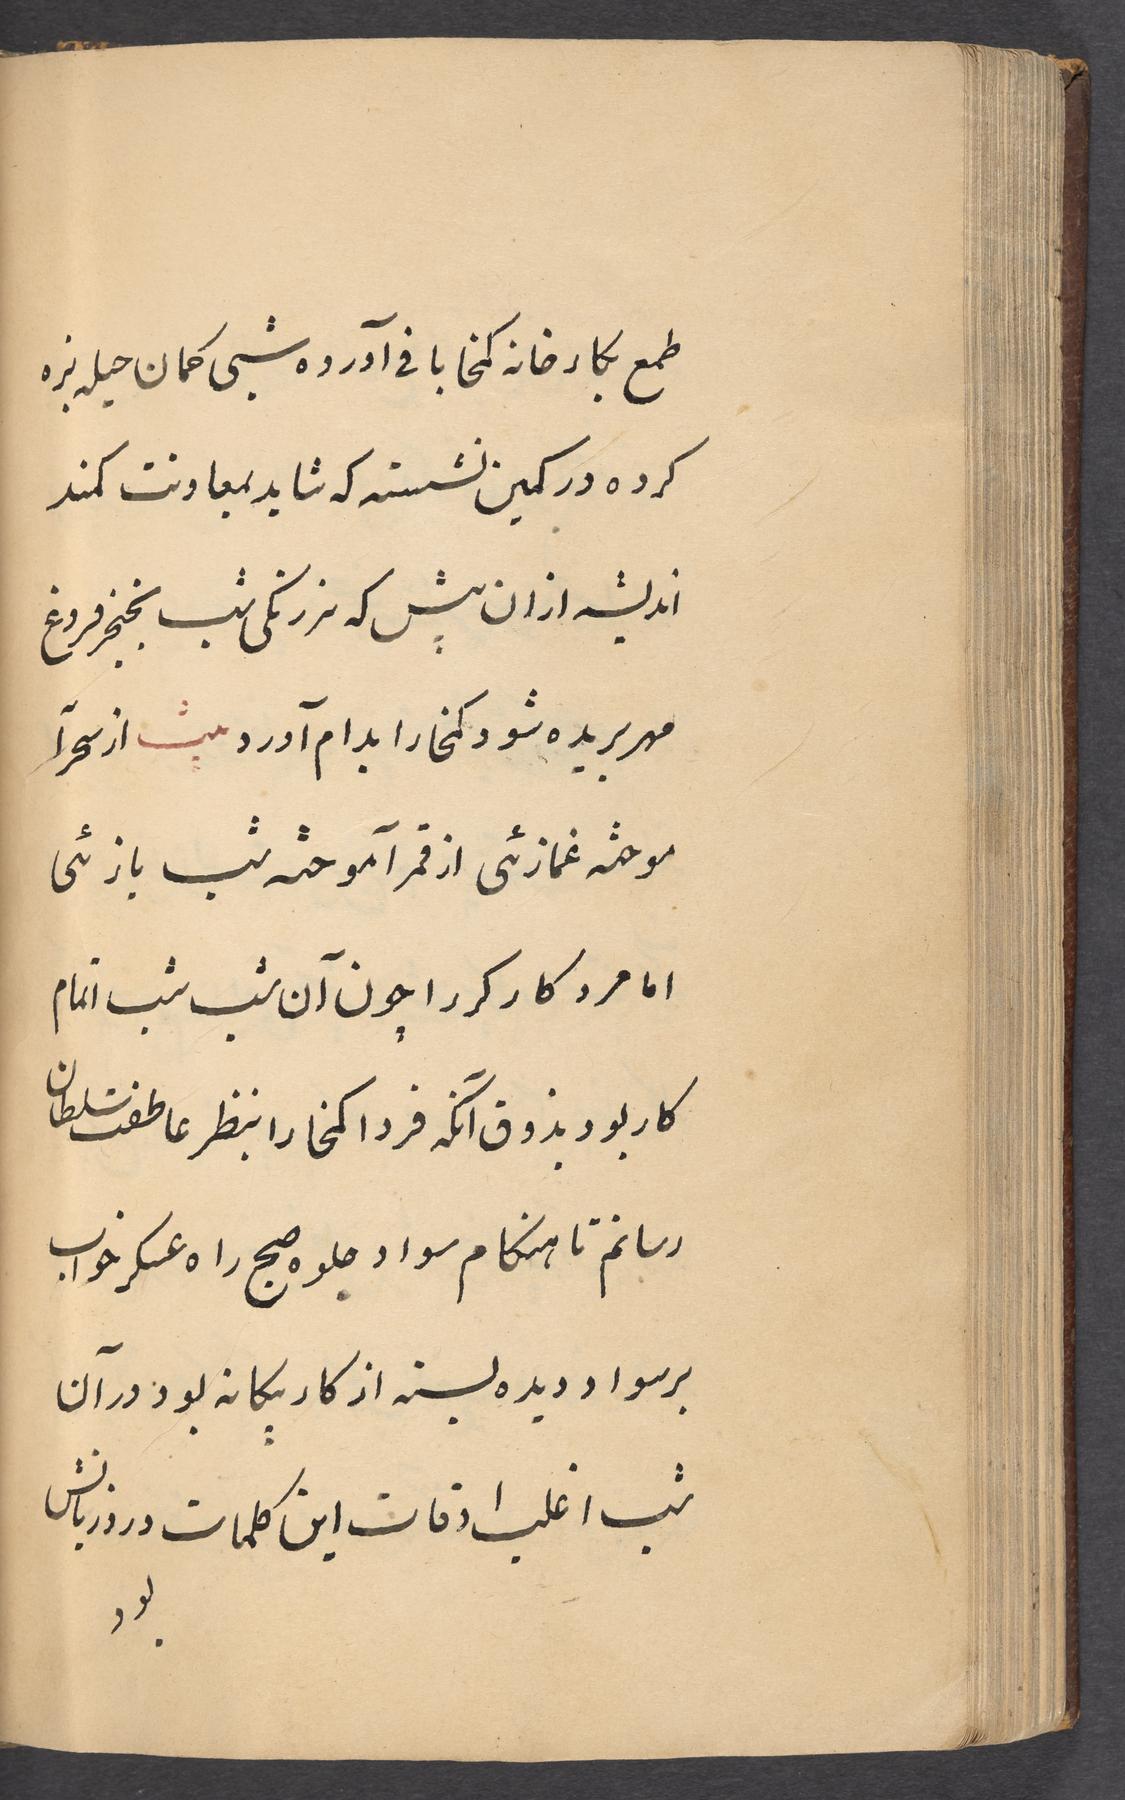 طمع بکارخانه کمخا بافی آورده شبی کمان حیله بزه
کرده در کمین نشسته که شاید بمعاونت کمند
اندیشه ازان پیش که سر زنگی شب بخنجر فروغ
مهر بریده شود کمخا را بدام آورد بیت از سحر آ
موخته غمازئی از قمر آموخته شب بازئی
اما مرد کارکر را چون آن شب شب اتمام
کار بود بذوق آنکه فردا کمخا را بنظر عاطفت سلطان
رسانم تا هنکام سواد جلوه صبح راه عسکر خواب
بر سواد دیده بسته از کار بیکانه بود در آن
شب اغلب اوقات این کلمات ورد زبانش
بود